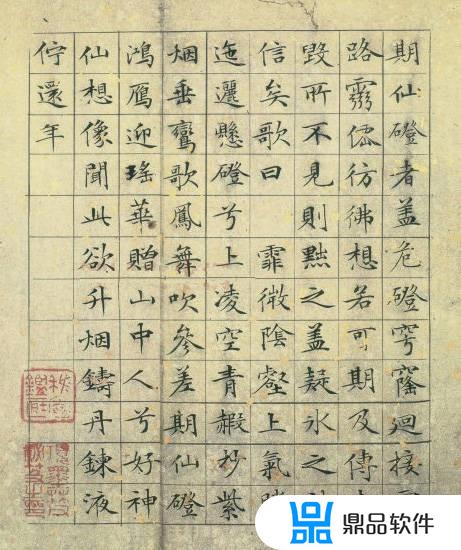 期仙磴者盖危磴穹窿迴接
路靈僊彷彿想若可期及傳
毀所不見則黜之盖疑冰之
信矣歌曰 霏微陰壑上氣
迤邐懸磴兮上凌空青赮杪紫
烟垂鸞歌鳳舞吹參差期仙磴
鴻鴈迎瑤華贈山中人兮好神
仙想像聞此欲升烟鑄丹鍊液
佇還年
鼎品软件